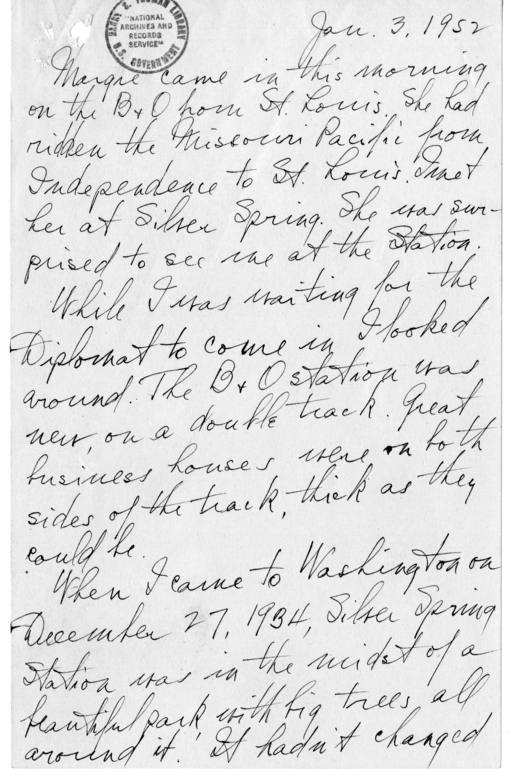 HARRY S. TRUMAN LIBRARY
"NATIONAL
ARCHIVES AND
RECORDS
SERVICE"
U.S. GOVERNMENT
Jan. 3, 1952
Margie came in this morning
on the B+O from St. Louis. She had
ridden the Missouri Pacific from
Independence to St. Louis. I met
her at Silver Spring. She was sur-
prised to see me at the Station.
While I was waiting for the
Diplomat to come in I looked
around. The B+O station was
new, on a double track. Great
business houses were on both
sides of the track, thick as they
could be.
When I came to Washington on
December 27, 1934, Silver Spring
Station was in the midst of a
beautiful park with big trees all
around it. It hadn't changed